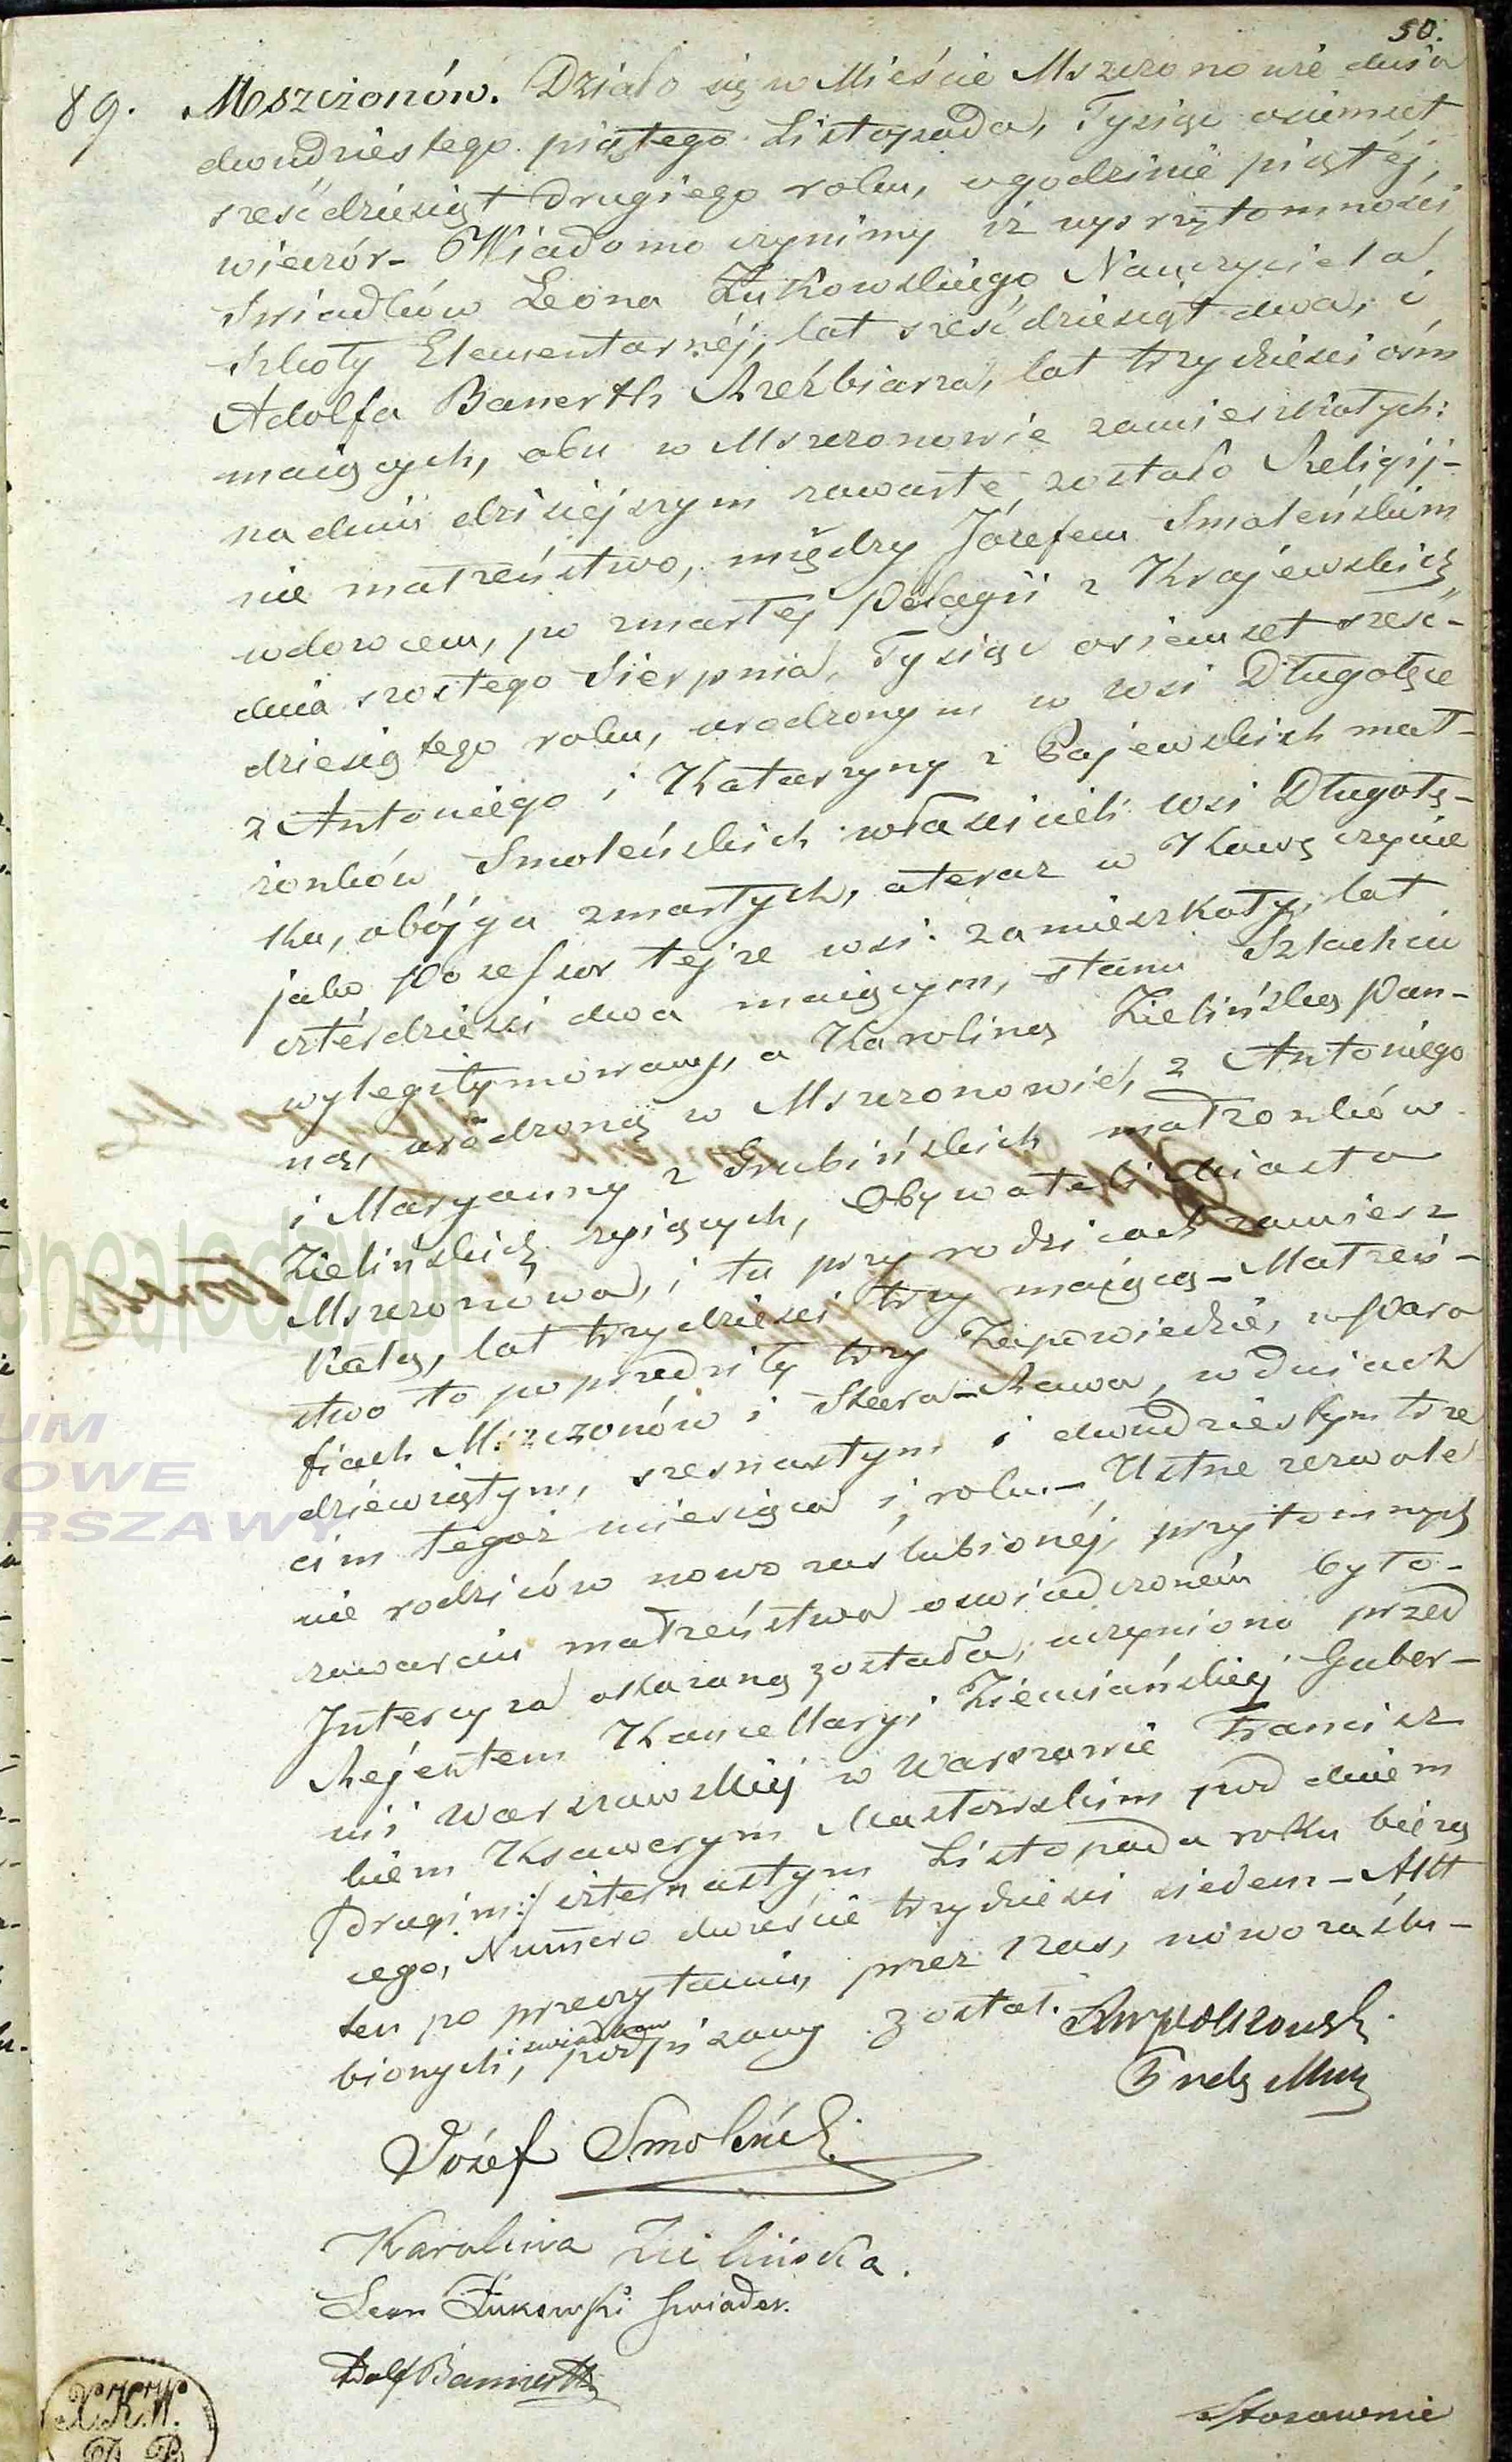 50.
89. Mszczonów. Działo się w Mieście Mszczonowie dnia
dwudziestego piątego Listopada, Tysiąc ośmset
sześćdziesiąt drugiego roku, o godzinie piątéj,
wieczór – Wiadomo czynimy iż w przytomności
Świadków Leona Żukowskiego Nauczyciela
Szkoły Elementarnéj, lat sześćdziesiąt dwa, i
Adolfa Banerth Rzeźbiarza, lat trzydzieści ośm
maiących, obu w Mszczonowie zamieszkałych:
na dniu dzisiéjszym zawarte zostało Religij-
nie małżeństwo, między Józefem Smoleńskim
wdowcem, po zmarłéj Pelagii z Krajewskich,
dnia szóstego Sierpnia, Tysiąc osiemset sześć-
dziesiątego roku, urodzonym w wsi Długołęce
z Antoniego i Katarzyny z Gajewskich mał-
żonków Smoleńskich właścicieli wsi Długołę-
ka, obójga zmarłych, a teraz w Kawęczynie
jako Possessor tejże wsi zamieszkały, lat
czterdzieści dwa maiącym, stanu Szlachcic
wylegitymowany, a Karoliną Zielińską Pan-
ną, urodzoną w Mszczonowie, z Antoniego
i Maryanny z Grubińskich małżonków
Zielińskich żyiących, Obywateli miasta
Mszczonowa, i tu przy rodzicach zamiesz
kałą, lat trzydzieści trzy maiącą – Małżeń-
stwo to poprzedziły trzy Zapowiedzie, w Para
fiach Mszczonów i Stara-Rawa, w dniach
dziewiątym, szesnastym i dwudziestym trze
cim tegoż miesiąca i roku – Ustne zezwole
nie rodziców nowo zaślubionéj, przytomnych
zawarciu małżeństwa oświadczoném było –
Intercyza okazaną została, uczyniona przed
Rejentem Kancellaryi Ziemiańskiéj Guber-
nii Warszawskiéj w Warszawie Francisz
kiem Ksawerym Masłowskim pod dniem
/drugim:/ czternastym Listopada roku bieżą
cego, Numero dwieście trzydzieści siedem – Akt
ten po przeczytaniu, przez Nas, nowo zaślu-
bionych, i świadków podpisany został.
Józef Smoleński
Karolina Zielińska.
Leon Żukowski świadek.
Adolf Bannerth
Stosownie